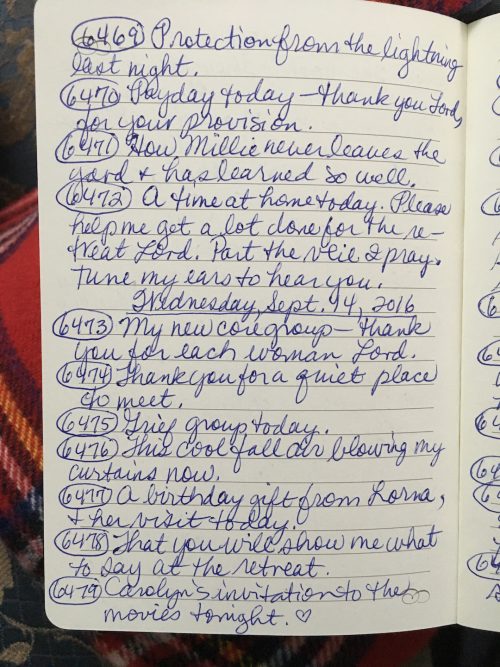 6469 Protection from the lightning
last night.
6470 Payday today — thank you Lord,
for your provision.
6471 How Millie never leaves the
yard & has learned so well.
6472 A time at home today. Please
help me get a lot done for the re-
treat Lord. Part the veie I pray.
Tune my ears to hear you.
Wednesday, Sept. 14, 2016
6473 My new core group — thank
you for each woman Lord.
6474 Thank you for a quiet place
to meet.
6475 Grief group today.
6476 This cool fall air blowing my
curtains now.
6477 A birthday gift from Lorna,
& her visit today.
6478 That you will show me what
to say at the retreat.
6479 Carolyn's invitation to the
movies tonight. ♡